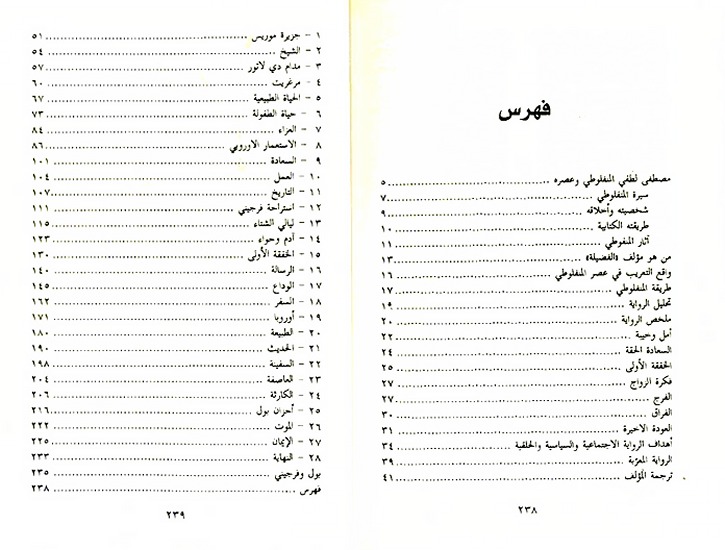 فهرس
مصطفى لطفي المنفلوطي وعصره ................ ٥
سيرة المنفلوطي ................ ٧
شخصيته وأخلاقه ................ ٩
طريقته الكتابية ................ ١٠
آثار المنفوطي ................ ١١
من هو مؤلف «الفضيلة» ................ ١٣
واقع التعريب في عصر المنفلوطي ................ ١٦
طريقة المنفلوطي ................ ١٧
تحليل الرواية ................ ١٩
ملخص الرواية ................ ٢٠
أمل وخيبة ................ ٢٢
السعادة الحقة ................ ٢٤
الخفقة الأولى ................ ٢٥
فكرة الزواج ................ ٢٧
الفرج ................ ٢٧
الفراق ................ ٣٠
العودة الاخيرة ................ ٣١
أهداف الرواية الاجتماعية والسياسية والخلقية ................ ٣٤
الرواية المعرّبة ................ ٣٩
ترجمة المؤلف ................ ٤١
٢٣٨
١ - جزيرة موريس ................ ٥١
٢ - الشيخ ................ ٥٤
٣ - مدام دي لاتور ................ ٥٧
٤ - مرغريت ................ ٦٠
٥ - الحياة الطبيعية ................ ٦٧
٦ - حياة الطفولة ................ ٧٣
٧ - العزاء ................ ٨٤
٨ - الاستعمار الاوروبي ................ ٨٦
٩ - السعادة ................ ١٠١
١٠ - العمل ................ ١٠٤
١١ - التاريخ ................ ١٠٧
١٢ - استراحة فرجيني ................ ١١١
١٣ - ليالي الشتاء ................ ١١٥
١٤ - آدم وحواء ................ ١٢٣
١٥ - الخفقة الأولى ................ ١٣٠
١٦ - الرسالة ................ ١٤٠
١٧ - الوداع ................ ١٤٥
١٨ - السفر ................ ١٦٢
١٩ - أوروبا ................ ١٧١
٢٠ - الطبيعة ................ ١٨٠
٢١ - الحديث ................ ١٩٠
٢٢ - السفينة ................ ١٩٨
٢٣ - العاصفة ................ ٢٠٤
٢٤ - الكارثة ................ ٢٠٦
٢٥ - أحزان بول ................ ٢١٦
٢٦ - الموت ................ ٢٢٢
٢٧ - الإيمان ................ ٢٢٥
٢٨ - النهاية ................ ٢٣٣
بول وفرجيني ................ ٢٣٥
فهرس ................ ٢٣٨
٢٣٩